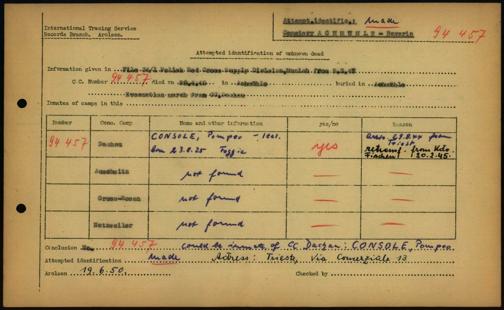 International Tracing Service
Records Branch, Arolsen.
Attempt.identific.: made
Cemetery ACHMÜHLE - Bavaria 94 457
Attempted identification of unknown dead
Information given in File 24/1 Polish Red Cross Supply Division, Munich from 2.5.47
C.C. Number 94 457 died on in Achmühle buried in Achmühle
Evacuation march from CC. Dachau
Inmates of camps in this
Number Conc. Camp Name and other information yes/no Reason
94 457 Dachau CONSOLE, Pompeo - Ital. born 23.8.25 Foggia yes arr. 29.9.44 from Triest retransf. from Kdo. Fischen! 20.2.45.
Auschwitz not found —
Gross-Rosen not found —
Natzweiler not found —
Conclusion No. 94 457 could be inmate of CC Dachau: CONSOLE, Pompeo.
Attempted identification made Adress: Trieste, Via Comerziale 13
Arolsen 19.6.50. Checked by